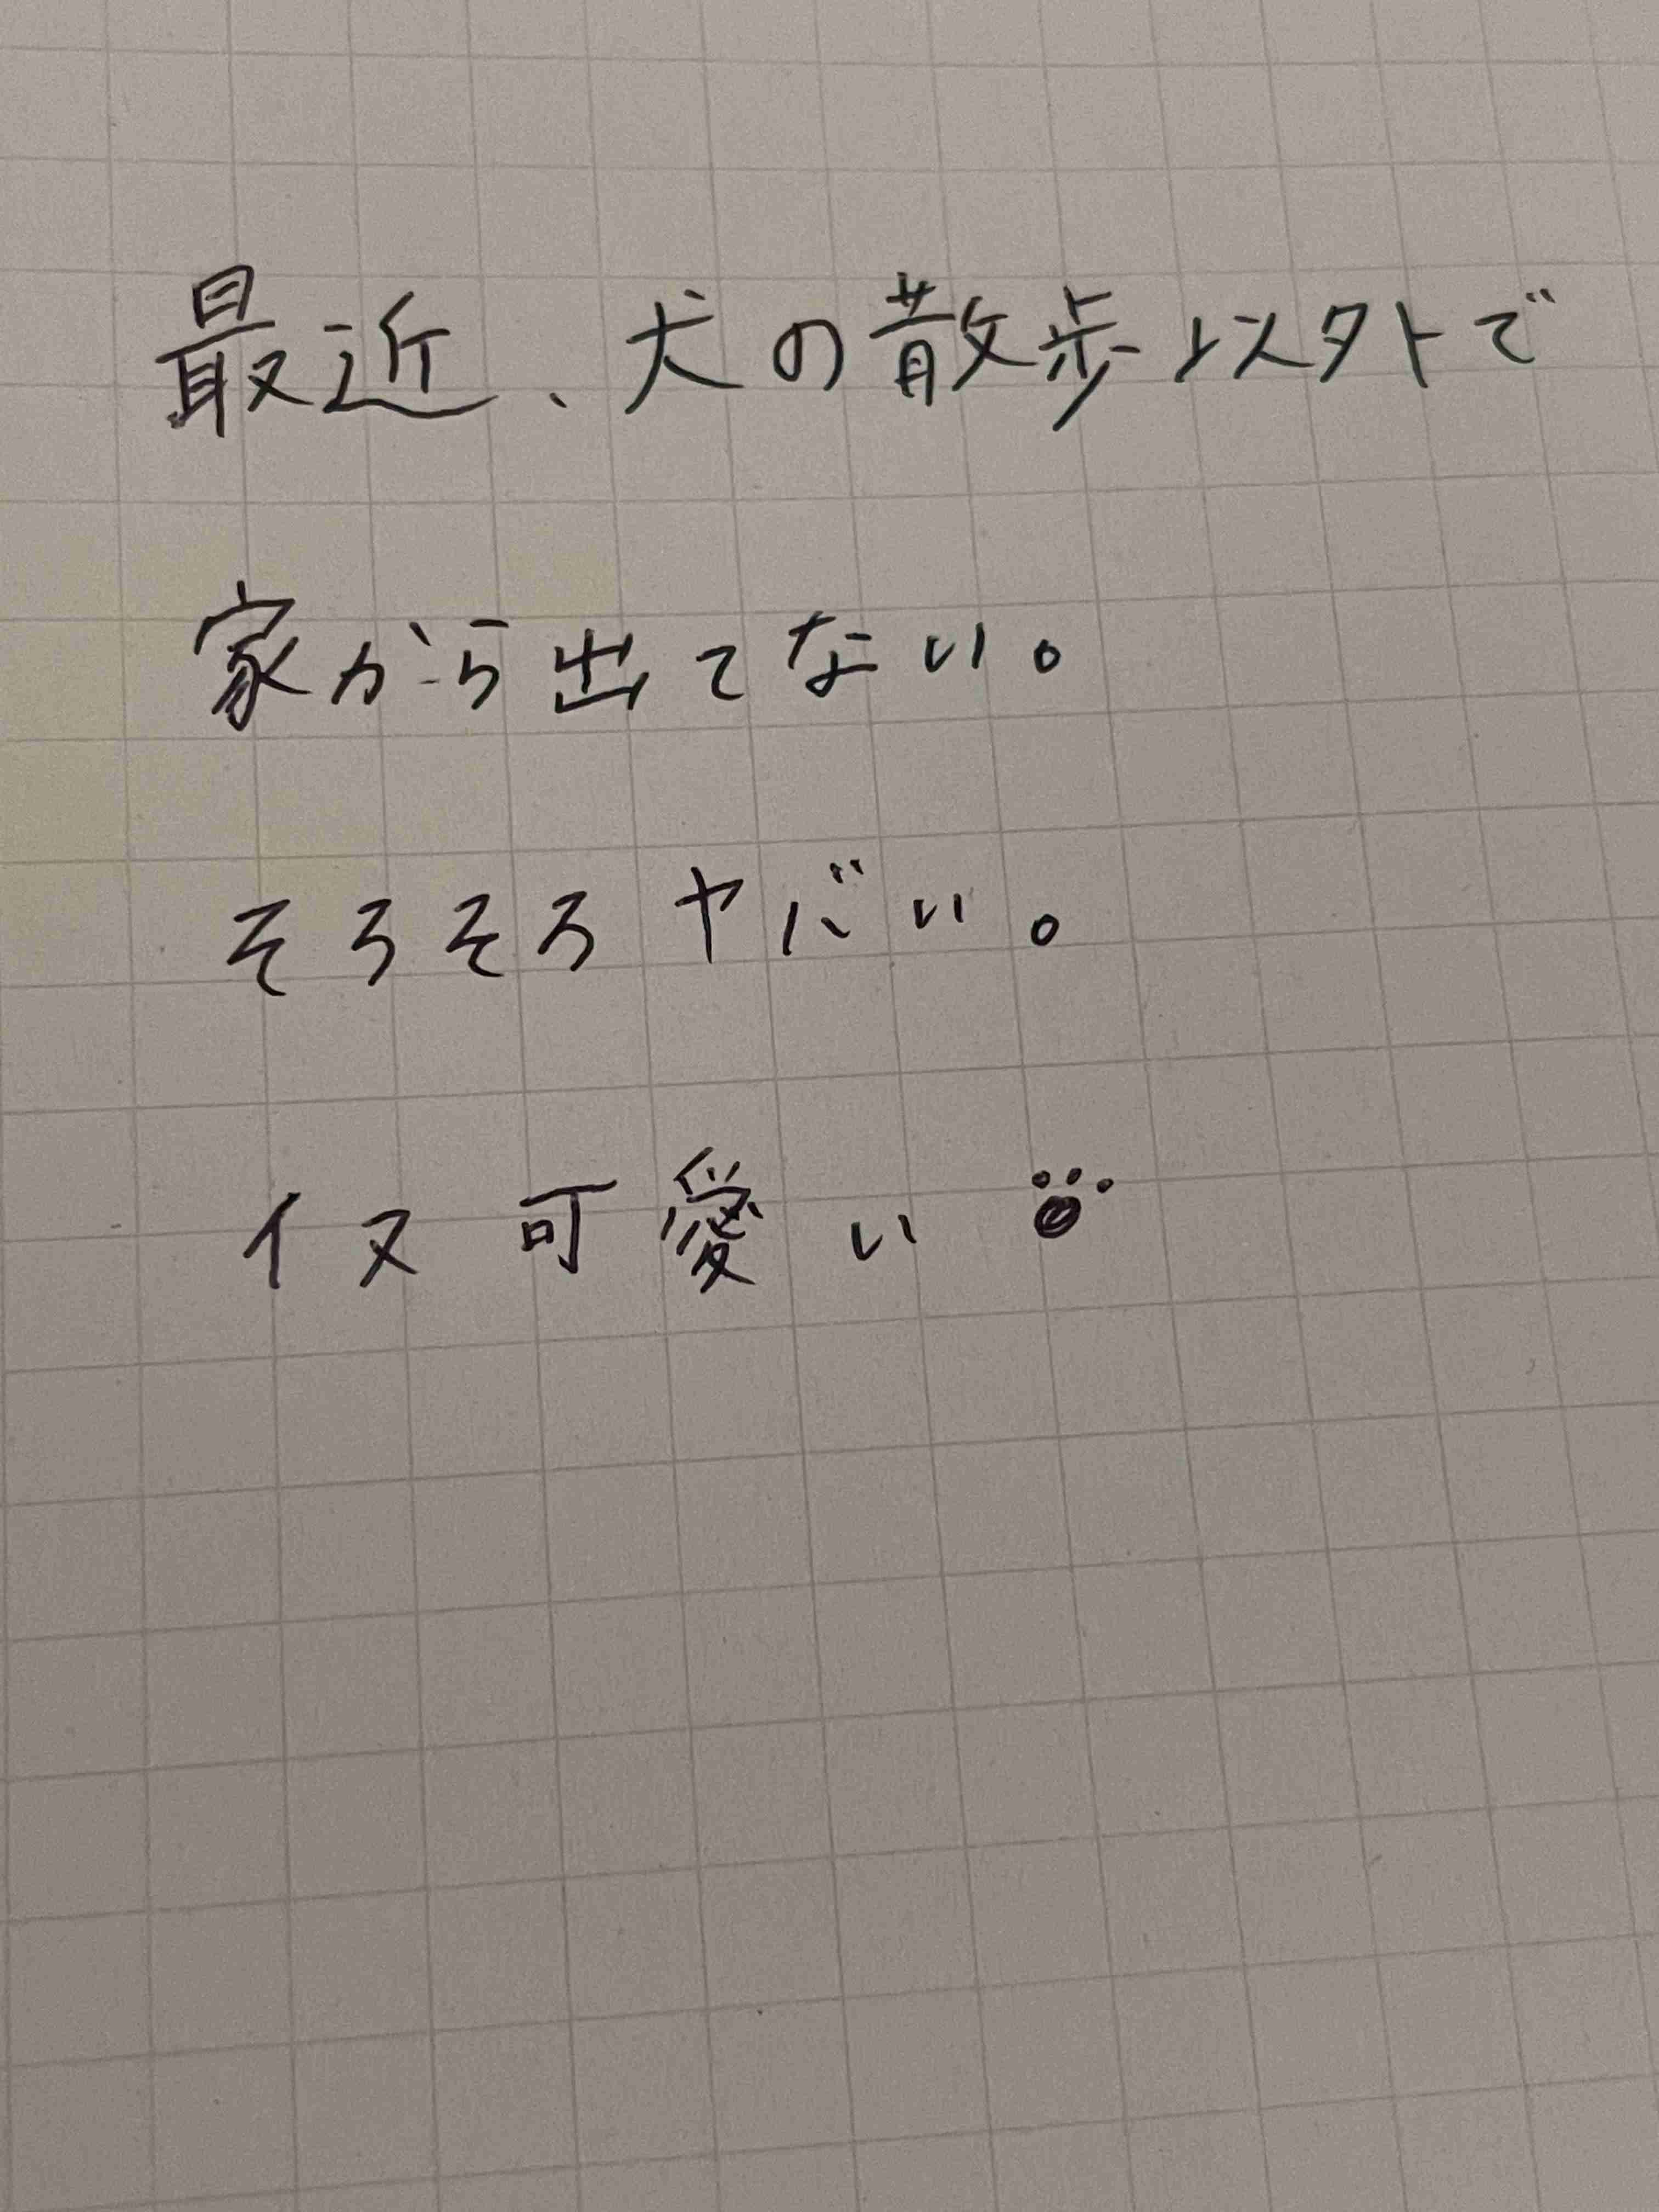 最近、犬の散歩以外で
家から出てない。
そろそろヤバい。
イヌ可愛い